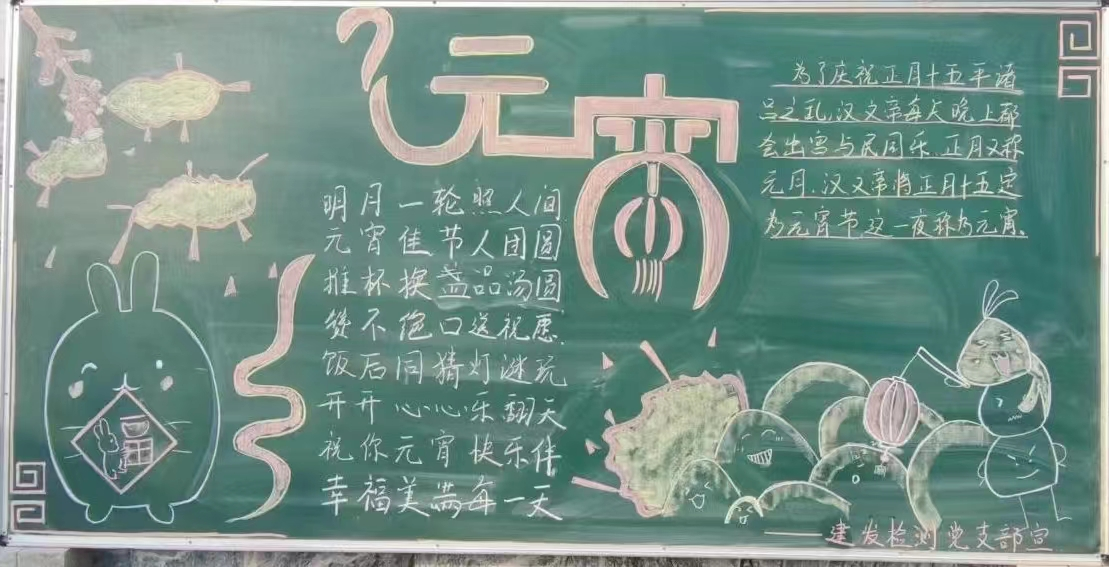 元宵
明月一轮照人间
元宵佳节人团圆
推杯换盏品汤圆
赞不绝口送祝愿.
饭后同猜灯谜玩
开开心心乐翻天
祝你元宵快乐伴
幸福美满每一天
为了庆祝正月十五平诸
吕之乱,汉文帝每天晚上都
会出宫与民同乐.正月又称
元月.汉文帝将正月十五定
为元宵节这一夜称为元宵.
福
——建发检测党支部宣